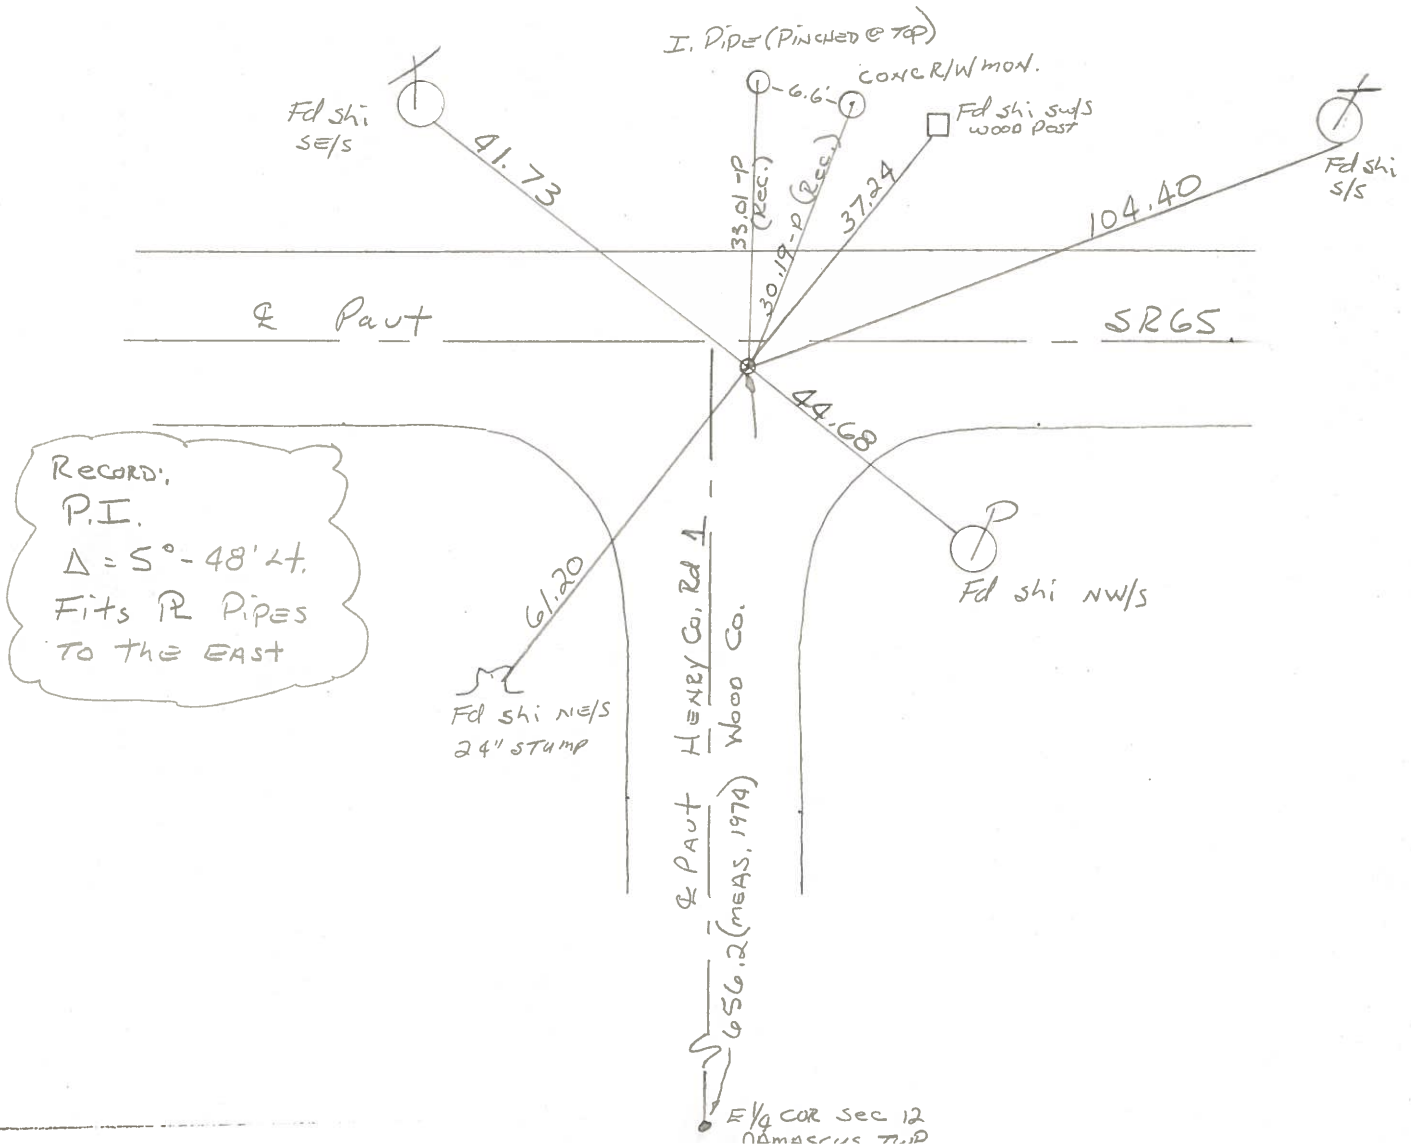 I. PIPE (PINCHED @ TOP)
CONC R/W MON.
-6.6'-
Fd shi
SE/S
Fd shi SW/S
WOOD POST
Fd shi
S/S
41.73
33.01-P
(Rec.)
30.19-P (Rec.)
37.24
104.40
℄ Pavt
SR65
44.68
RECORD:
P.I.
Δ = 5°-48' Lt.
Fits ⅊ PIPES
TO the EAST
61.20
P
Fd shi NW/S
Fd shi NE/S
24" STUMP
℄ PAVT HENRY Co. Rd 1
WOOD Co.
656.2 (MEAS. 1974)
E 1/4 COR SEC 12
DAMASCUS TWP